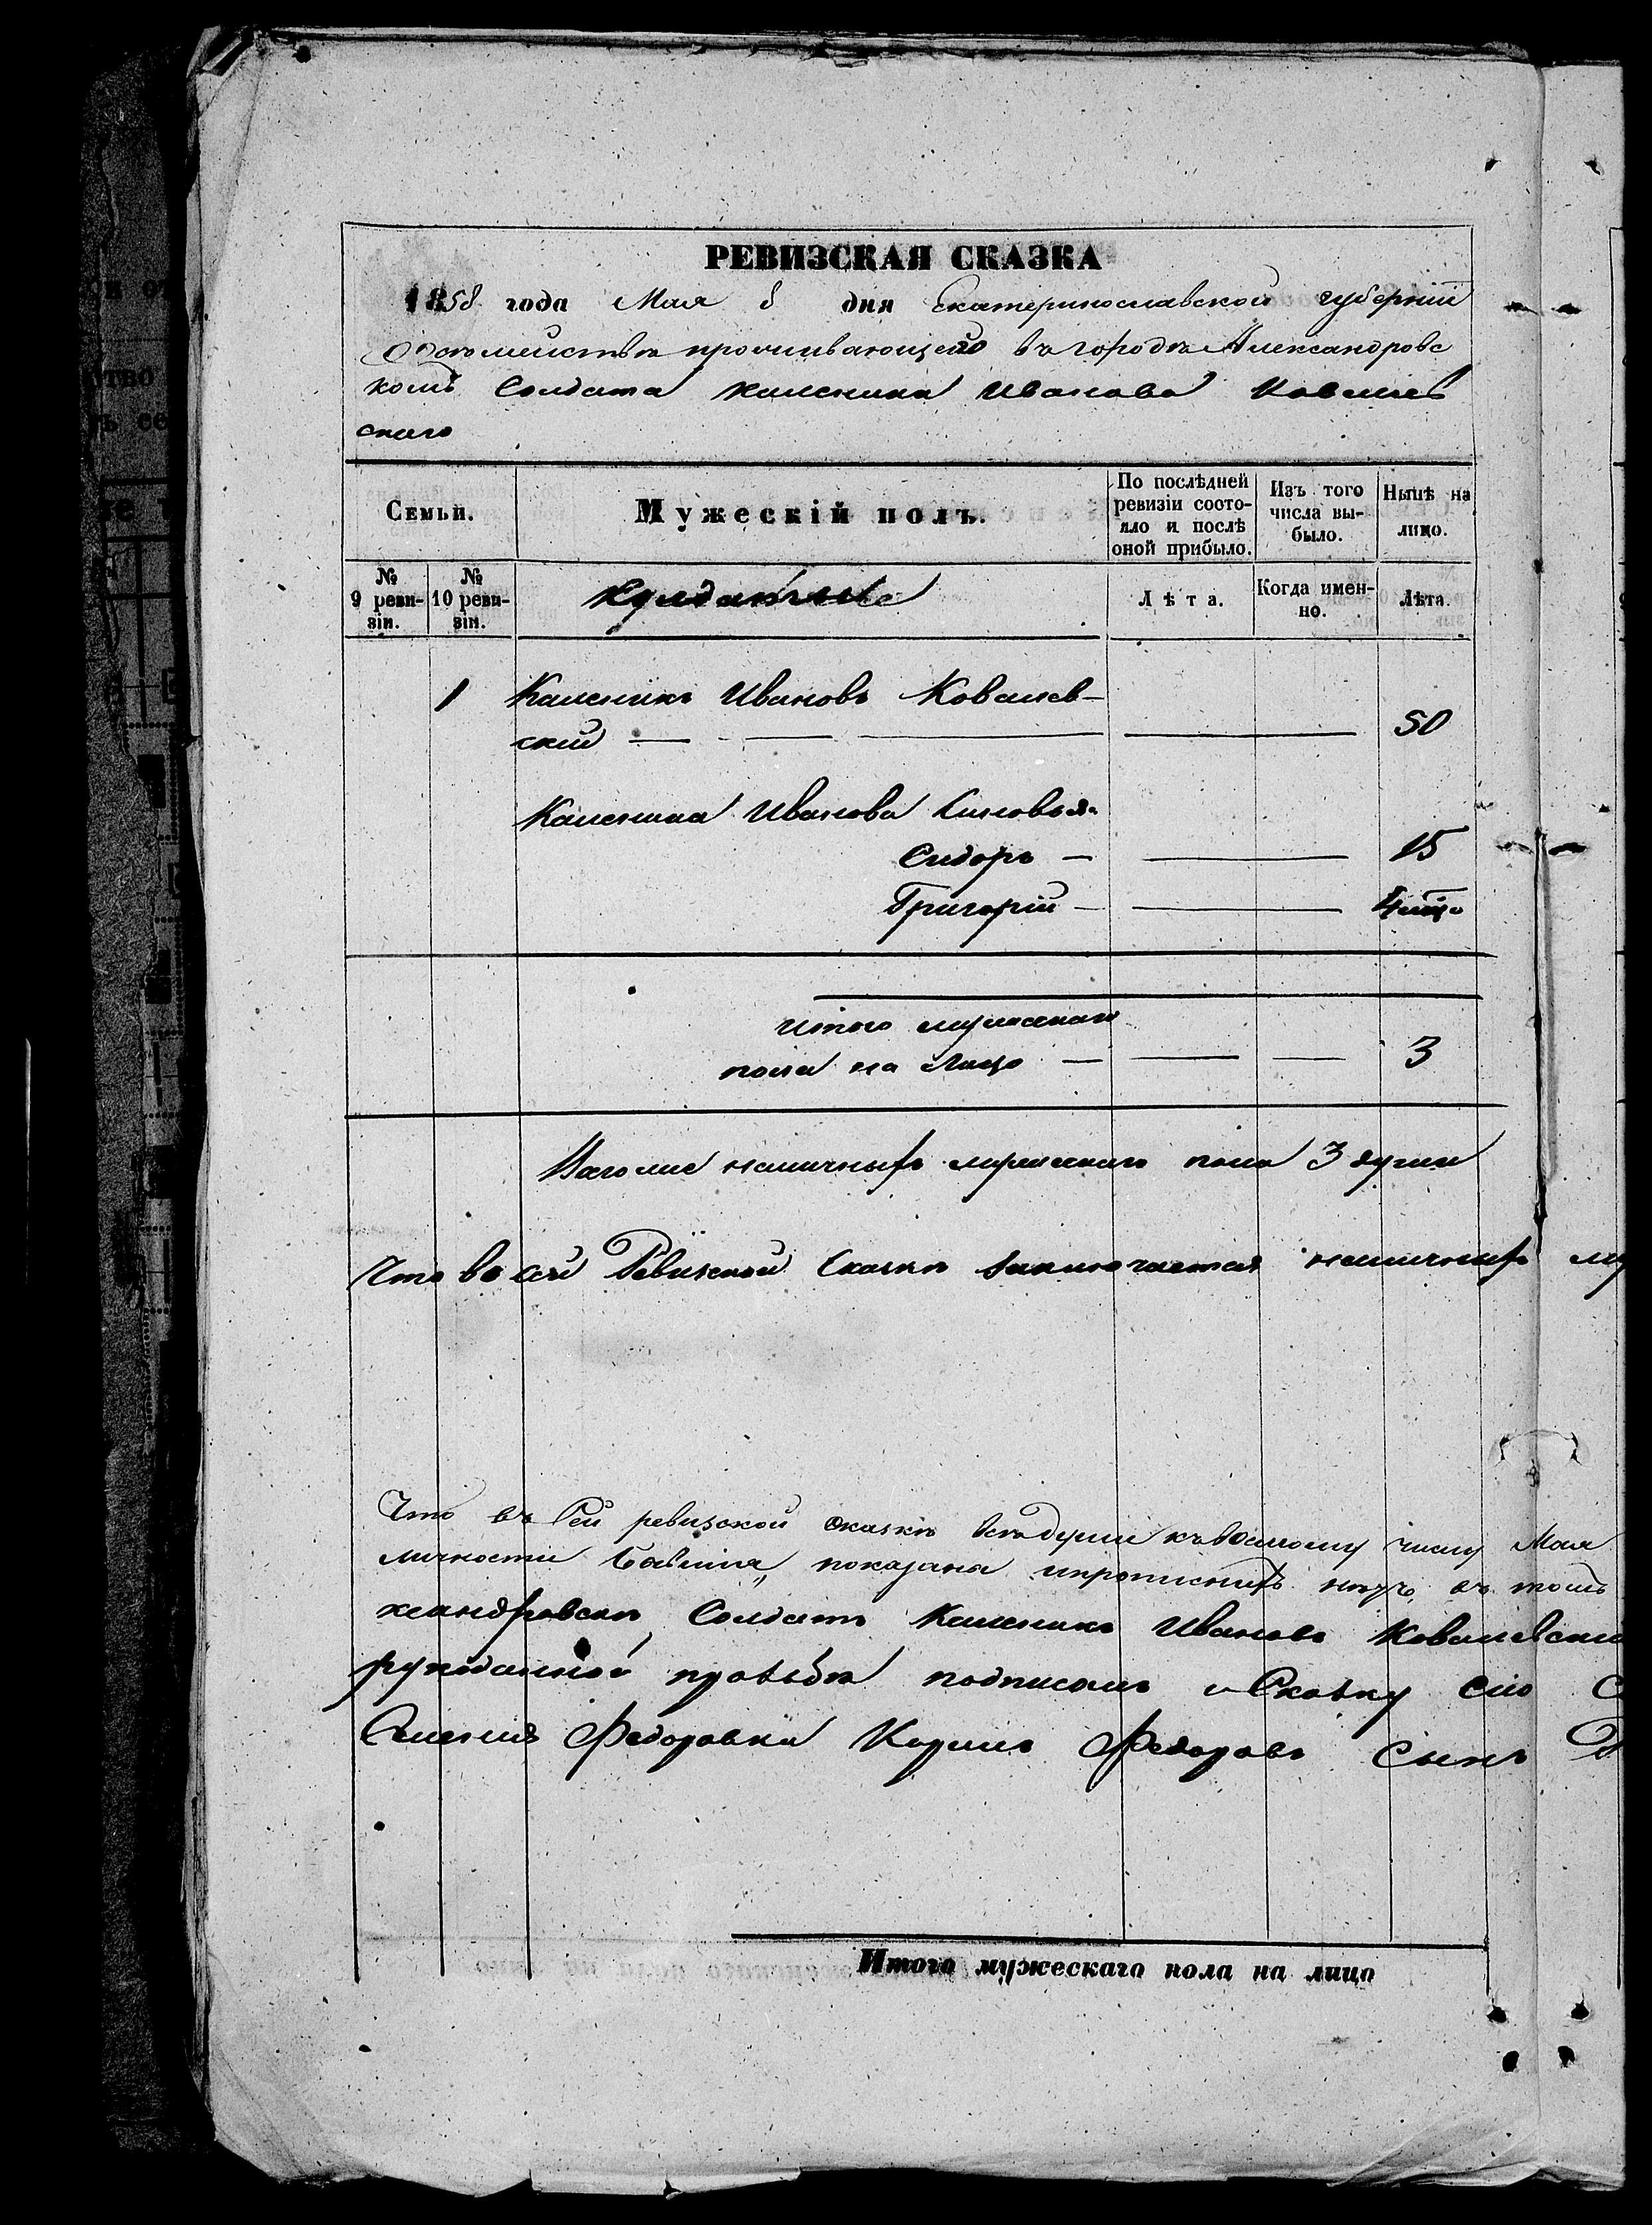 РЕВИЗСКАЯ СКАЗКА
1858 года Мая 8 дня Екатеринославской губерніи
О семействѣ проживающего въ городѣ Александровс
комъ Солдата Каленика Иванова Ковалев
скаго
Семьи.
Мужескій полъ.
По послѣдней ревизіи состо-
яло и послѣ
оной прибыло.
Изъ того
числа вы-
было.
Нынѣ на
лицо.
№
9 реви-
зіи.
№
10 реви-
зіи.
Лѣта.
Когда имен-
но.
Лѣта.
1 Каленикъ Ивановъ Ковалев-
ский 50
Каленика Иванова Сыновья
Сидоръ — 15
Григорій — 4
Итого мужескаго
пола на лицо — 3
Всего наличныхъ мужескаго пола 3 души
Что во сей Ревизской Сказкѣ заключается наличныхъ му
Что въ сей ревизской сказкѣ всѣ души къ восьмому числу Мая
личности показана въ томъ
ксандровскѣ Солдатъ Каленикъ Ивановъ Ковалевский
подписалъ и Сказку сію
Федоровъ Сынъ
Итого мужескаго пола на лицо